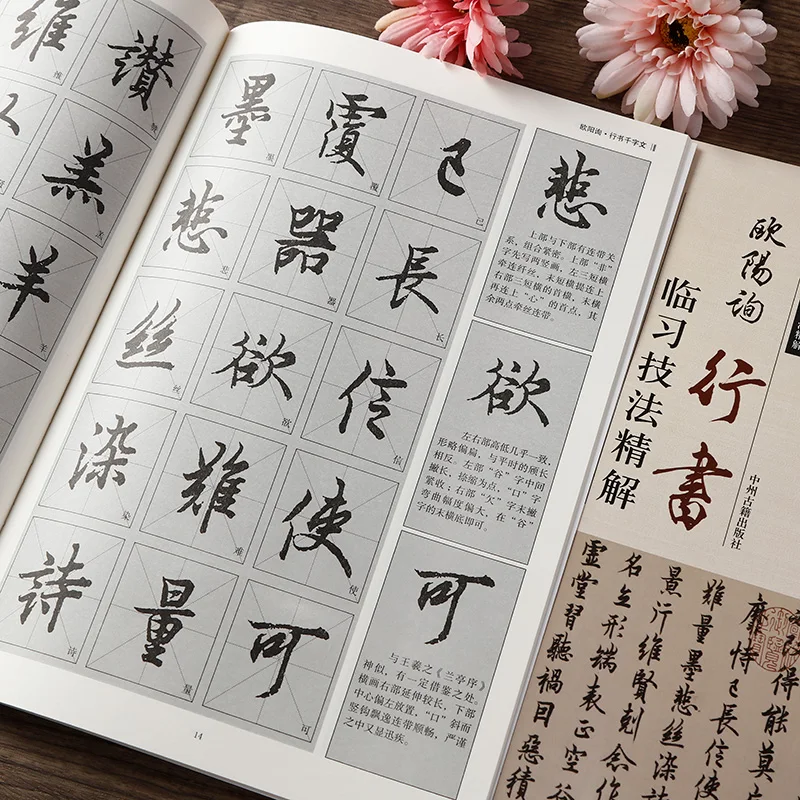 欧阳询·行书千字文
己 己
長 长
信 信
使 使
可 可
覆 覆
器 器
欲 欲
難 难
量 量
墨 墨
悲 悲
絲 丝
染 染
詩 诗
讚
羔 羔
羊 羊
維 维
14
悲
上部与下部有连带关
系,组合紧密。上部“非”
字先写两竖画,左三短横
牵连纤丝,末短横提连上
右部三短横的首横,末横
再连上“心”的首点,其
余两点牵丝连带。
欲
左右部高低几乎一致,
形略偏扁,与平时的颀长
相反。左部“谷”字中间
撇长,捺缩为点,“口”字
紧收;右部“欠”字末撇
弯曲幅度偏大,在“谷”
字的末横底即可。
可
与王羲之《兰亭序》
神似,有一定借鉴之处。
横画右部延伸较长,下部
中心偏左放置,“口”斜而
竖钩飘逸连带顺畅,严谨
之中又显迅疾。
歐陽詢
行書
临习技法精解
中州古籍出版社
得能莫
靡恃己長信使
難量墨悲絲染詩
景行維賢剋念作
名立形端表正空谷
虛堂習聽禍因惡積